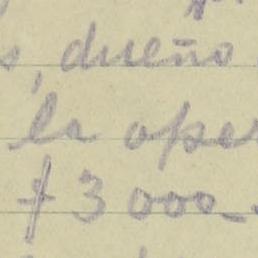 s, dueño
la oper
$ 3000_